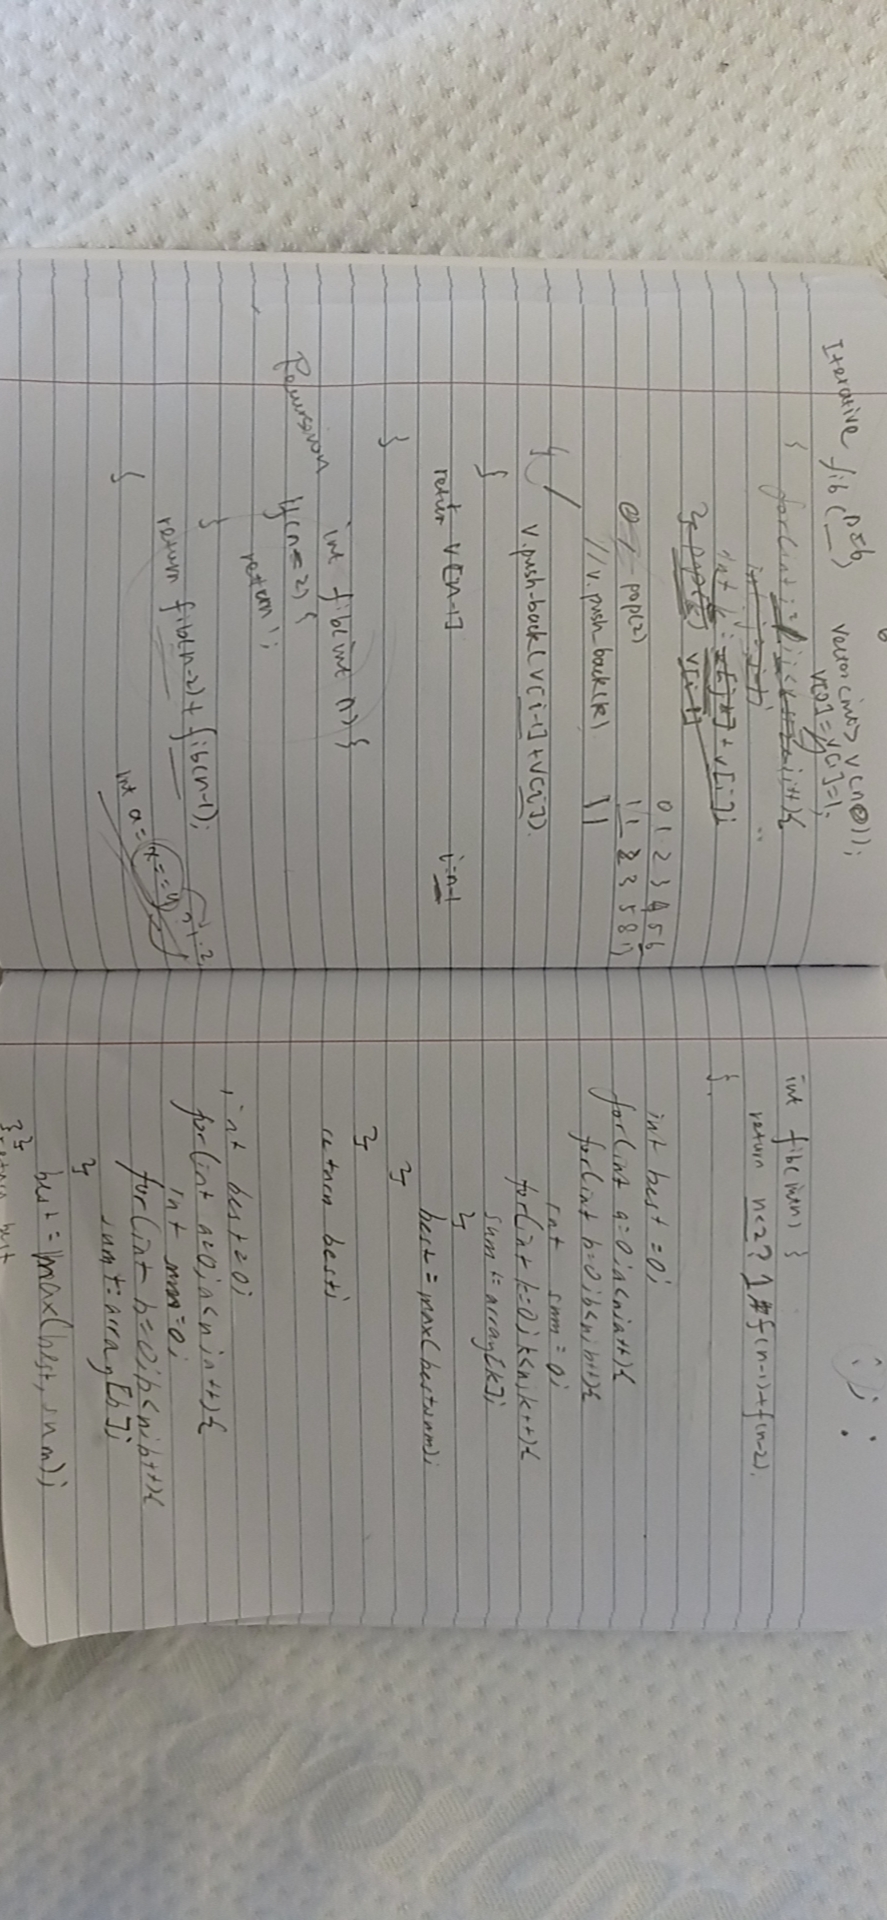 Iterative fib(__) n=6, vector<int> v(n
v[0]=v[1]=1;
{ for(int i=
int j=
int k = v[j] + v[i];
pop(2)
//v.push_back(k).
0 1 2 3 4 5 6
1 1 2 3 5 8
v.push-back(v[i-1]+v[i]).
}
return v[n-1] i=n-1
}
Recursion int fib(int n) {
if(n==2) {
return 1;
}
return fib(n-2) + fib(n-1);
}
int a =
int fib(int n) {
return n<2? 1 : f(n-1)+f(n-2).
}
int best = 0;
for(int a=0;a<n;a++){
for(int b=0;b<n;b++){
int sum = 0;
for(int k=0;k<n;k++){
sum += array[k];
}
best = max(best,sum);
}
}
return best;
int best = 0;
for(int a=0;a<n;a++){
int sum=0;
for(int b=0;b<n;b++){
sum += array[b];
}
best = max(best, sum);
}}
return best